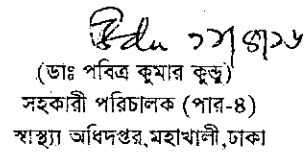 ২৭/৪/১৬
(ডাঃ পবিত্র কুমার কুন্ডু)
সহকারী পরিচালক (পার-৪)
স্বাস্থ্য অধিদপ্তর,মহাখালী,ঢাকা